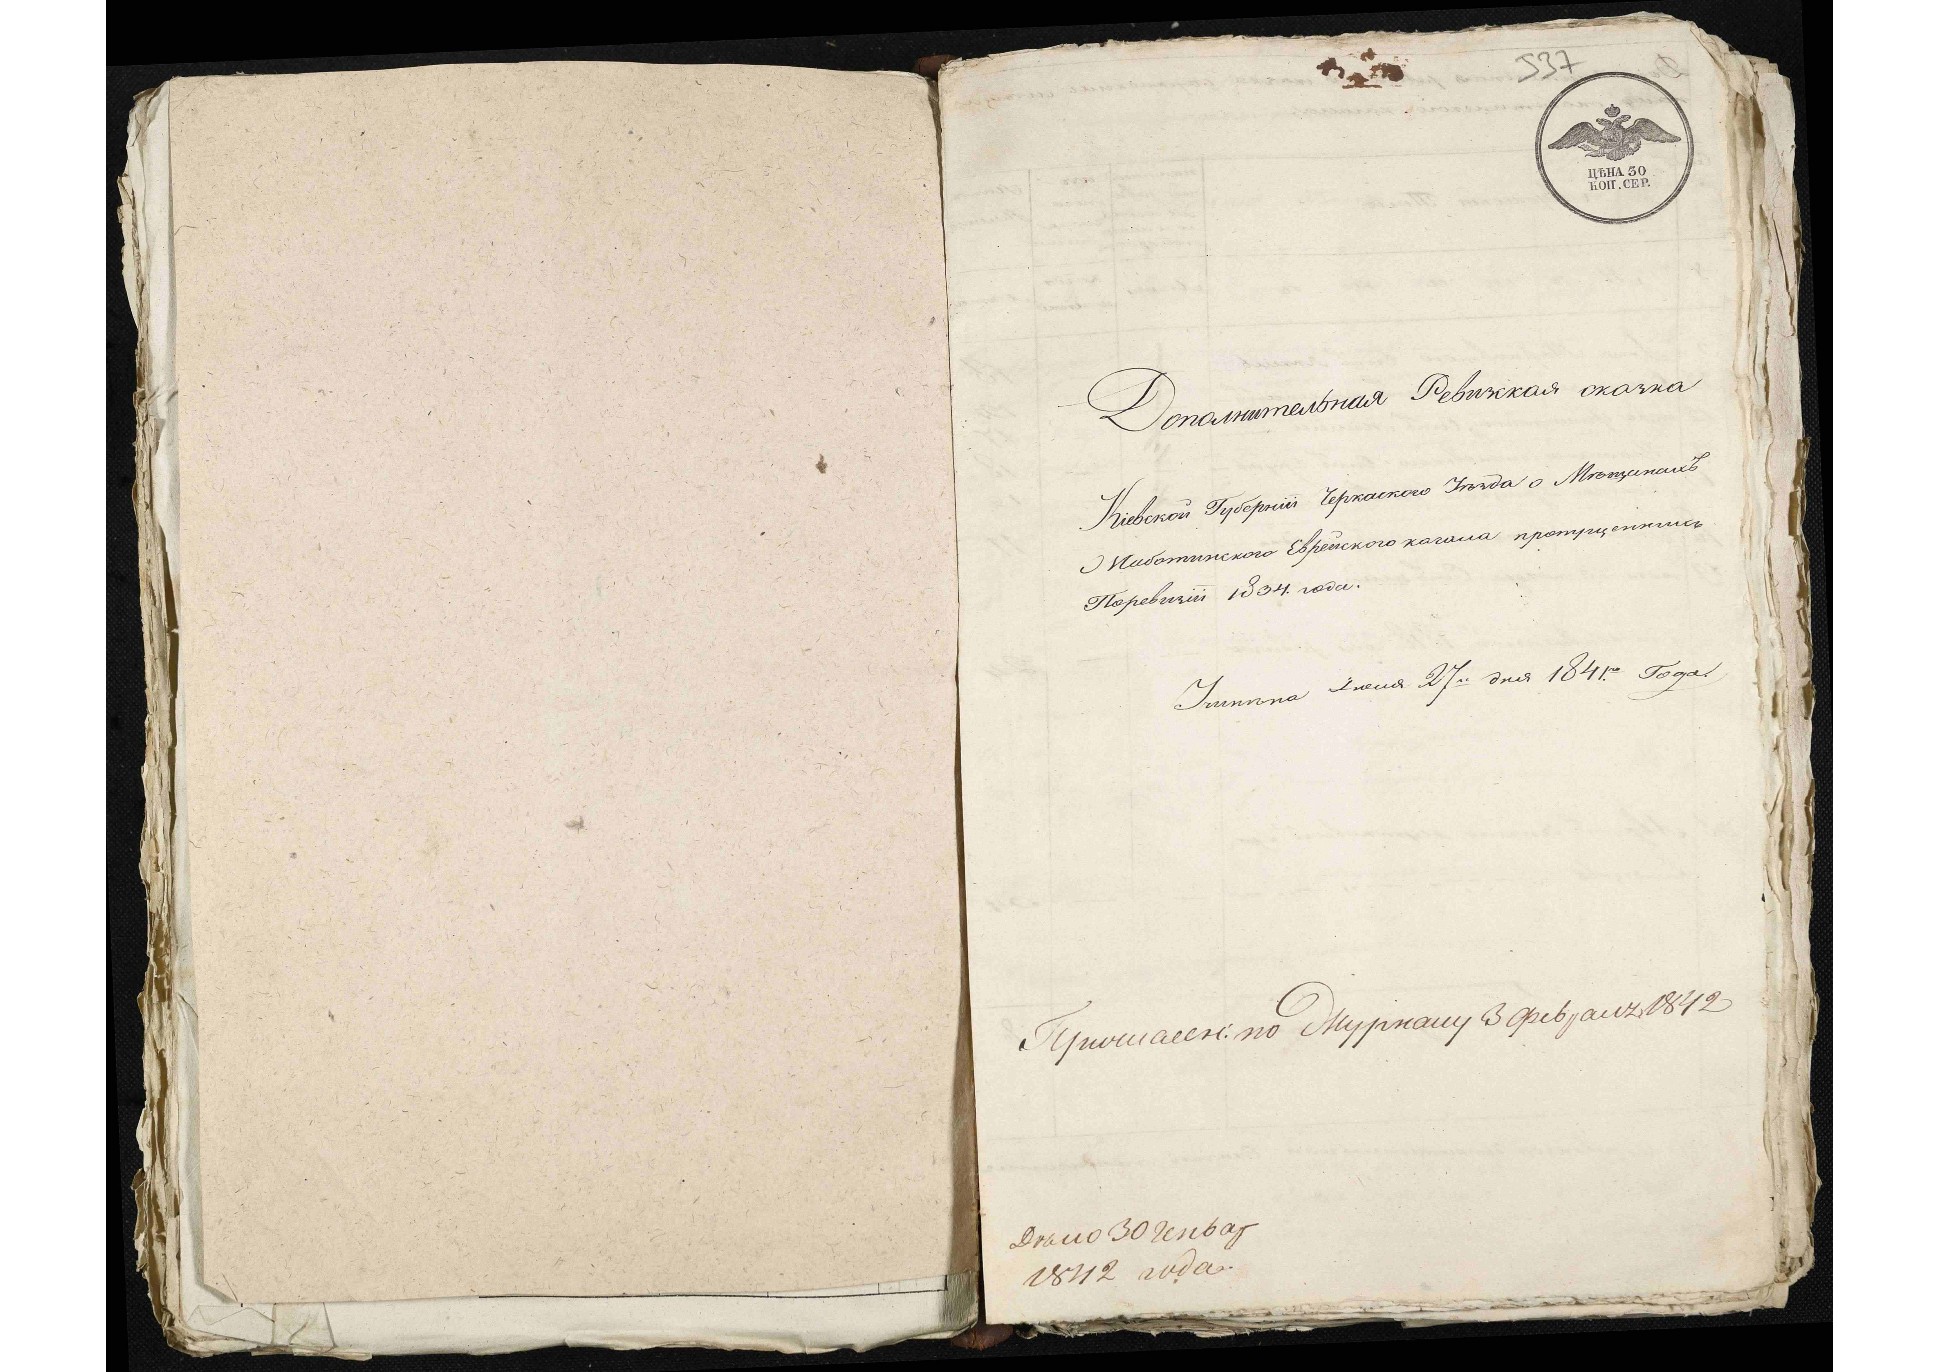 537
ЦѢНА 30
КОП. СЕР.
Дополнительная Ревижкая сказка
Кіевской Губерніи Черкаского Уѣзда о Мѣщанахъ
Жаботинского Еврейского кагала пропущенныхъ
Поревизіи 1834. года.
Учинѣна Іюня 27го дня 1841го Года
по Журналу 3 февраля 1842
30 Генвар
1842 года.